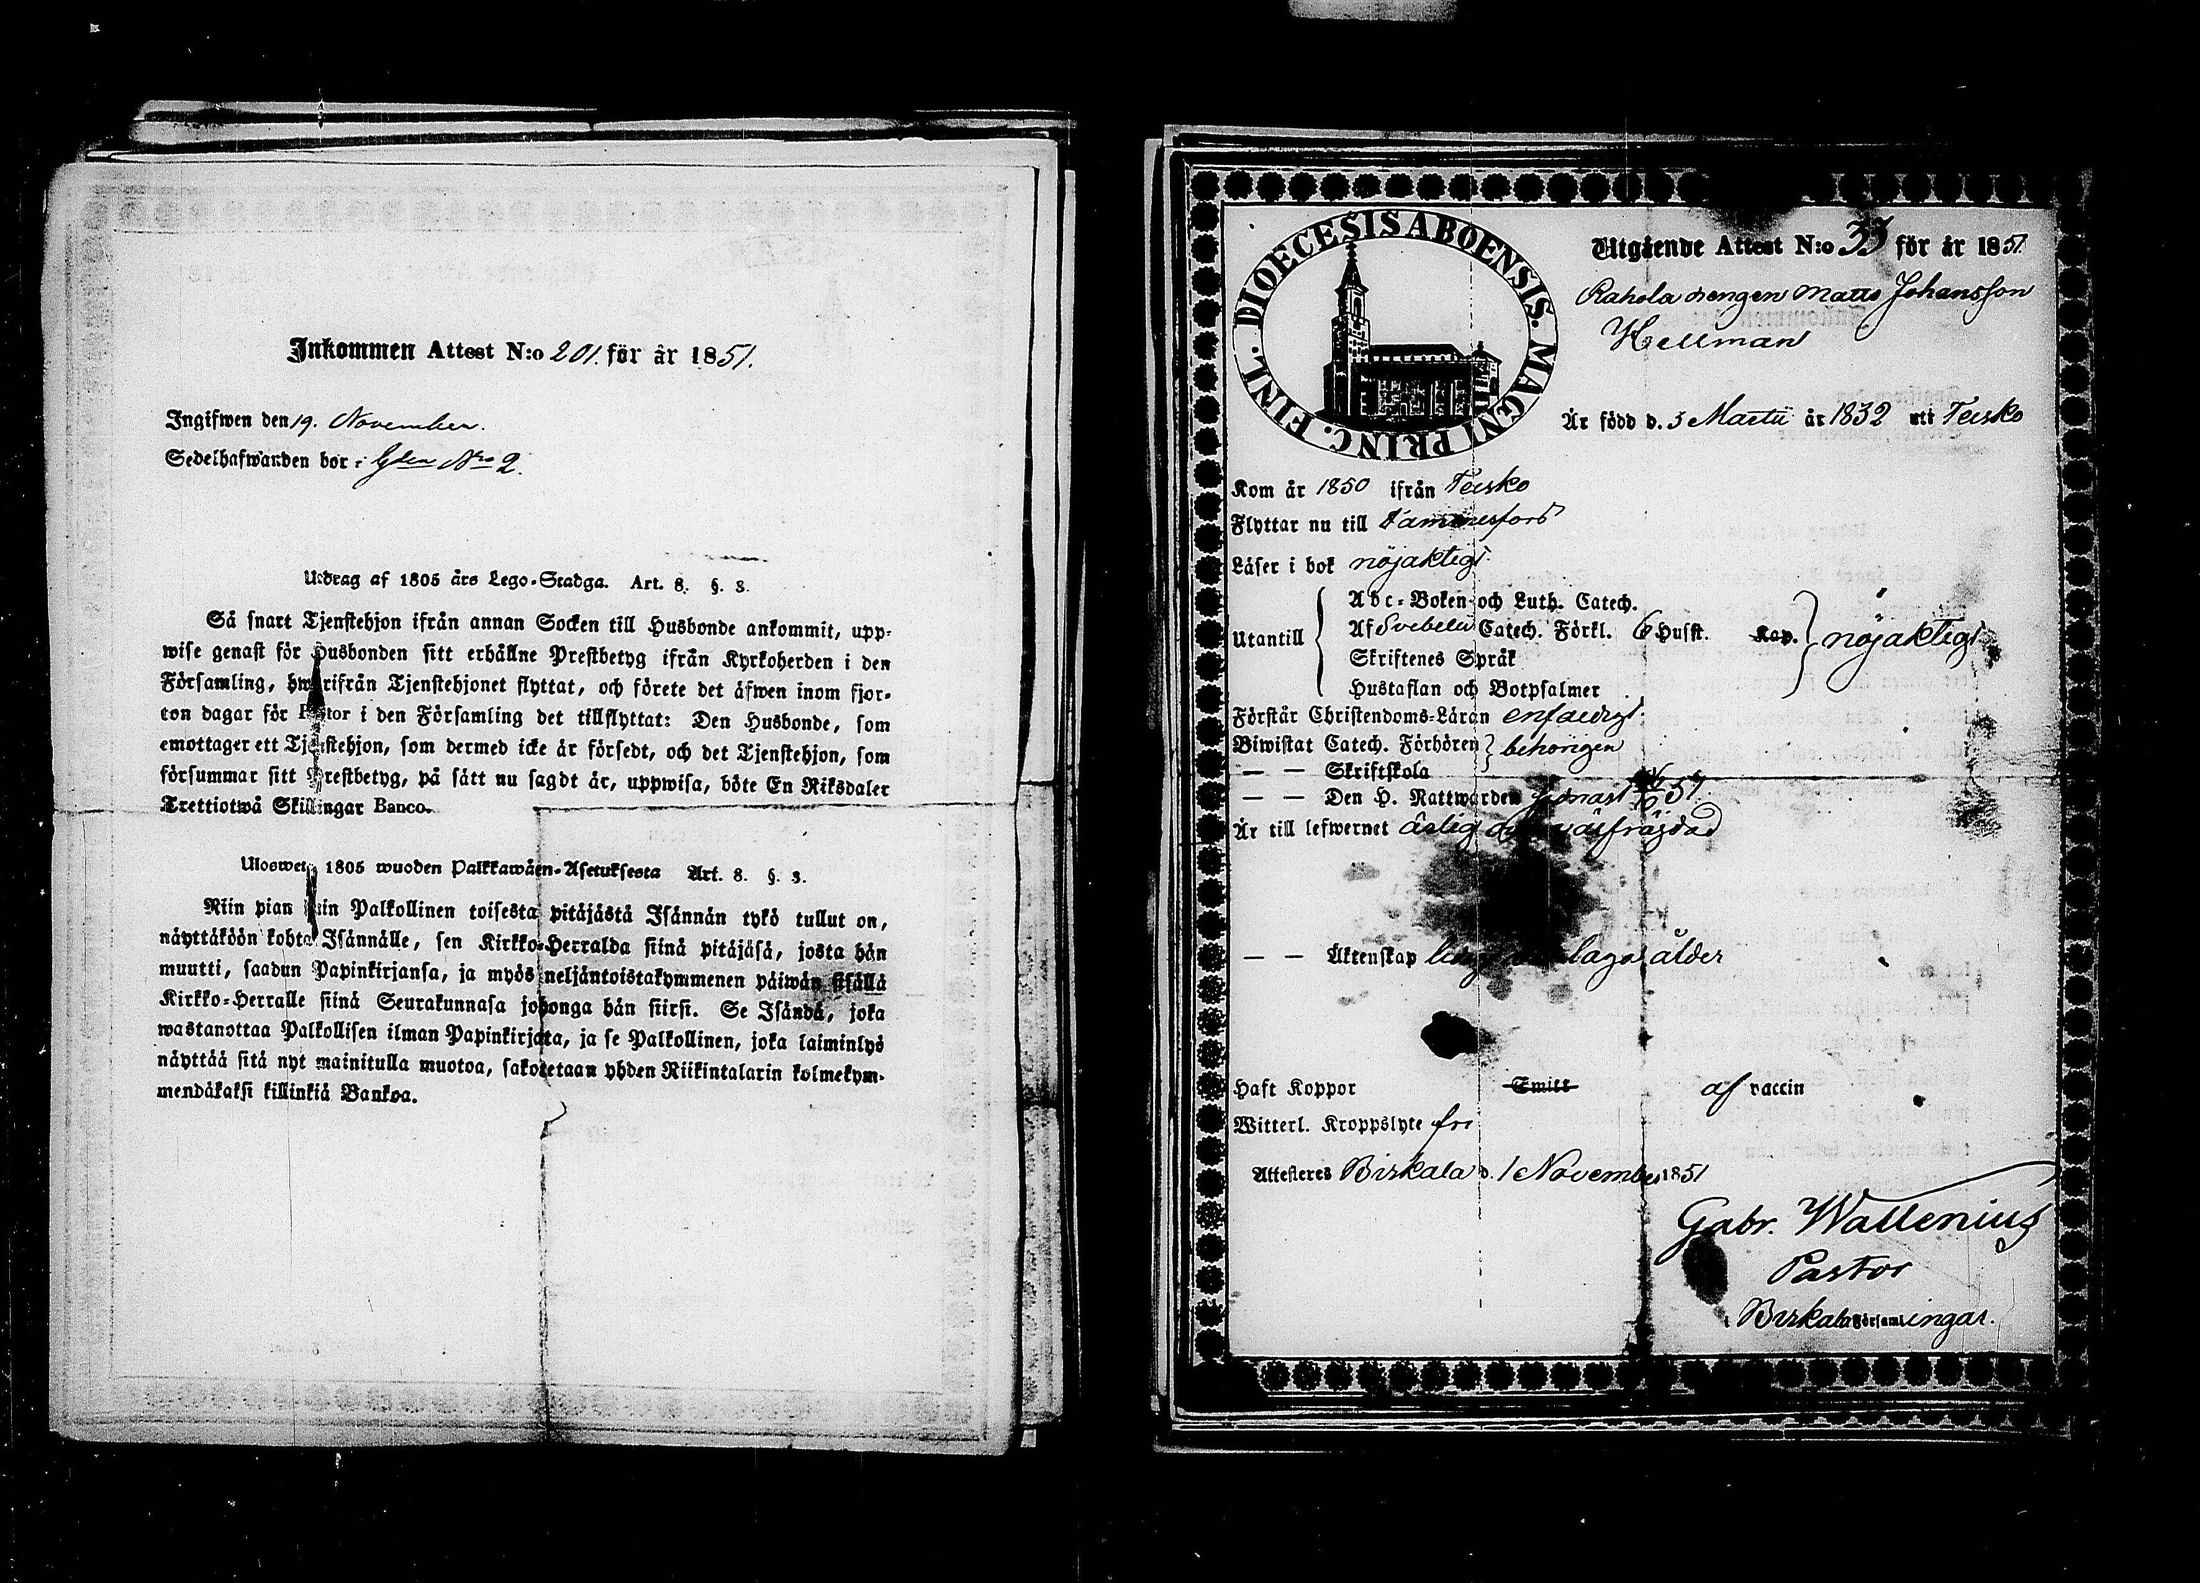 Inkommen Attest N:o 201. för år 1851.
Ingifwen den 19. November.
Sedelhafwanden bor i Gden Nro 2.
Utdrag af 1805 års Lego-Stadga. Art. 8. §. 3.
Så snart Tjenstehjon ifrån annan Socken till Husbonde ankommit, upp-
wise genast för Husbonden sitt erhållne Prestbetyg ifrån Kyrkoherden i den
Församling, hwarifrån Tjenstehjonet flyttat, och förete det äfwen inom fjor-
ton dagar för Pastor i den Församling det tillflyttat: Den Husbonde, som
emottager ett Tjenstehjon, som dermed icke är försedt, och det Tjenstehjon, som
försummar sitt Prestbetyg, på sätt nu sagdt är, uppwisa, böte En Riksdaler
Trettiotwå Skillingar Banco.
Uloswets 1805 wuoden Palkkawäen-Asetuksesta Art. 8. §. 3.
Niin pian kuin Palkollinen toisesta pitäjästä Isännän tykö tullut on,
näyttäköön kohta Isännälle, sen Kirkko-Herralda siinä pitäjäsä, josta hän
muutti, saadun Papinkirjansa, ja myös neljäntoistakymmenen päiwän sisällä
Kirkko-Herralle siinä Seurakunnasa johonga hän siirsi. Se Isändä, joka
wastanottaa Palkollisen ilman Papinkirjata, ja se Palkollinen, joka laiminlyö
näyttää sitä nyt mainitulla muotoa, sakotetaan yhden Riikintalarin kolmekym-
mendäkaksi killinkiä Bankoa.
DIOECESIS ABOENSIS. MAGNI PRINC. FINL.
Utgående Attest N:o 33 för år 1851
Rahola drengen Matts Johansson
Hellman
Är född d. 5 Martii år 1832 uti Teisko
Kom år 1850 ifrån Teisko
Flyttar nu till Tammerfors
Läser i bok nöjaktigt
Utantill
Abc-Boken och Luth. Catech.
Af Svebelii Catech. Förkl. 6 Husst. Kap. nöjaktigt
Skriftenes Språk
Hustaflan och Botpsalmer
Förstår Christendoms-Läran enfaldigt.
Biwistat Catech. Förhören behörigen
— — Skriftskola
— — Den H. Nattwarden 51.
Är till lefwernet ärlig och välfräjdad
— — Äktenskap laga ålder
Haft Koppor Smitt af vaccin
Witterl. Kroppslyte fri
Attesteres Birkala d. 1 November 1851
Gabr. Wallenius
Pastor
i Birkala Församlingar.